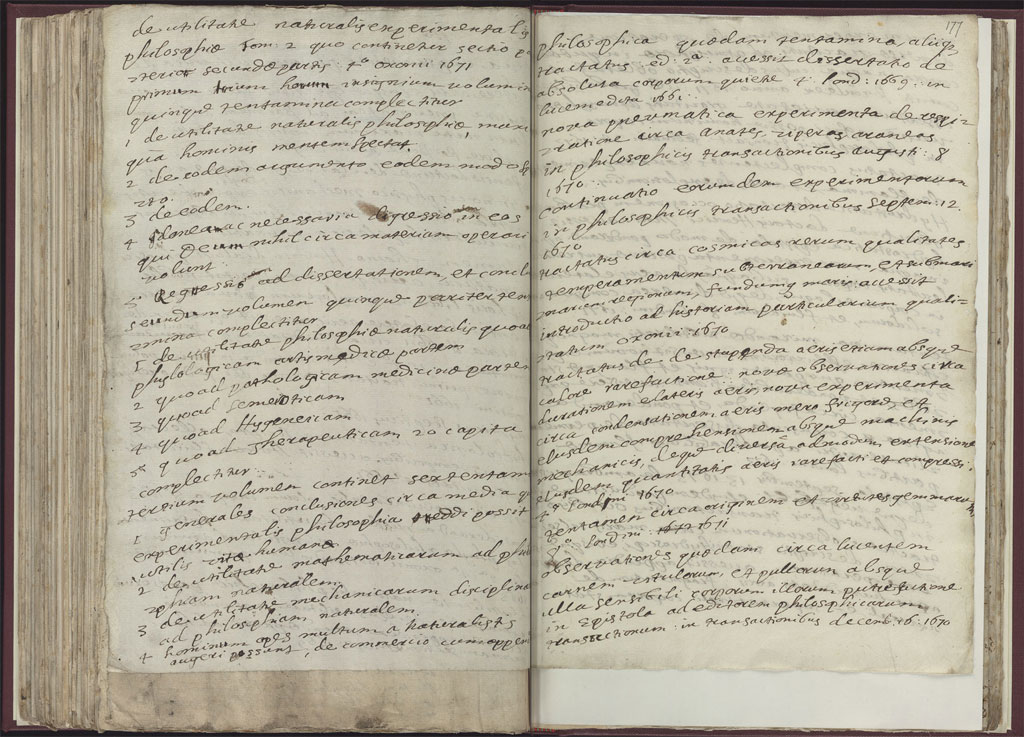 de utilitate naturalis experimentalis
philosophiæ Tom: 2 quo continetur sectio p
sterior secundæ partis 4to oxonii 1671
primum trium horum insignium volumin
quinque tentamina complectitur
1 de utilitate naturalis philosophiæ, maxi
qua hominis mentem spectat.
2 de eodem argumento eodem modo sp
3 de eodem.
4 Idonea ac necessaria digressio in eos
qui Deum nihil circa materiam operari
volunt
5 Regressio ad dissertationem, et conclu
secundum volumen quinque pariter ten
mina complectitur
1 de utilitate philosophiæ naturalis quoad
physiologicam artis medicæ partem
2 quoad pathologicam medicinæ partem
3 quoad semeioticam
4 quoad Hygeneiam
5 quoad Therapeuticam 20 capita
complectitur
tertium volumen continet sex tentam
1 generales conclusiones circa media q
experimentalis philosophia reddi possit
utilis vitæ humanæ
2 de utilitate mathematicarum ad philo
phiam naturalem
3 de utilitate mechanicarum disciplina
ad philosophiam naturalem
4 hominum opes multum a naturalistis
augeri possunt, de commercio cum appen
177
philosophica quædam tentamina, aliique
tractatus ed: 2a accessit dissertatio de
absoluta corporum quiete 4 Lond: 1669: in
lucem edita 1661
nova pneumatica experimenta de respi-
ratione circa anates, viperas araneas
in philosophicis transactionibus augusti: 8
1670
continuatio eorumdem experimentorum
in philosophicis transactionibus septem: 12
1670
tractatus circa cosmicas rerum qualitates
temperamentum subterranearum, et submari
narum regionum, fundumque maris accessit
introductio ad historiam particularium quali-
tatum oxonii: 1670
tractatus de stupenda aeris etiam absque
calore rarefactione novæ observationes circa
durationem elateris aeris, nova experimenta
circa condensationem aeris mero frigore, et
ejusdem comprehensionem absque machinis
mechanicis, deque diversâ admodum extensione
ejusdem quantitatis aeris rarefacti et compressi
4o Londini 1670
tentamen circa originem et virtutes gemmarum
8o Londini 1671
observationes quædam circa lucentem
carnem vitulorum, et pullorum absque
ulla sensibili corporum illorum putrefactione
in Epistola ad editorem philosophicarum
transactionum: in transactionibus decemb: 16: 1670